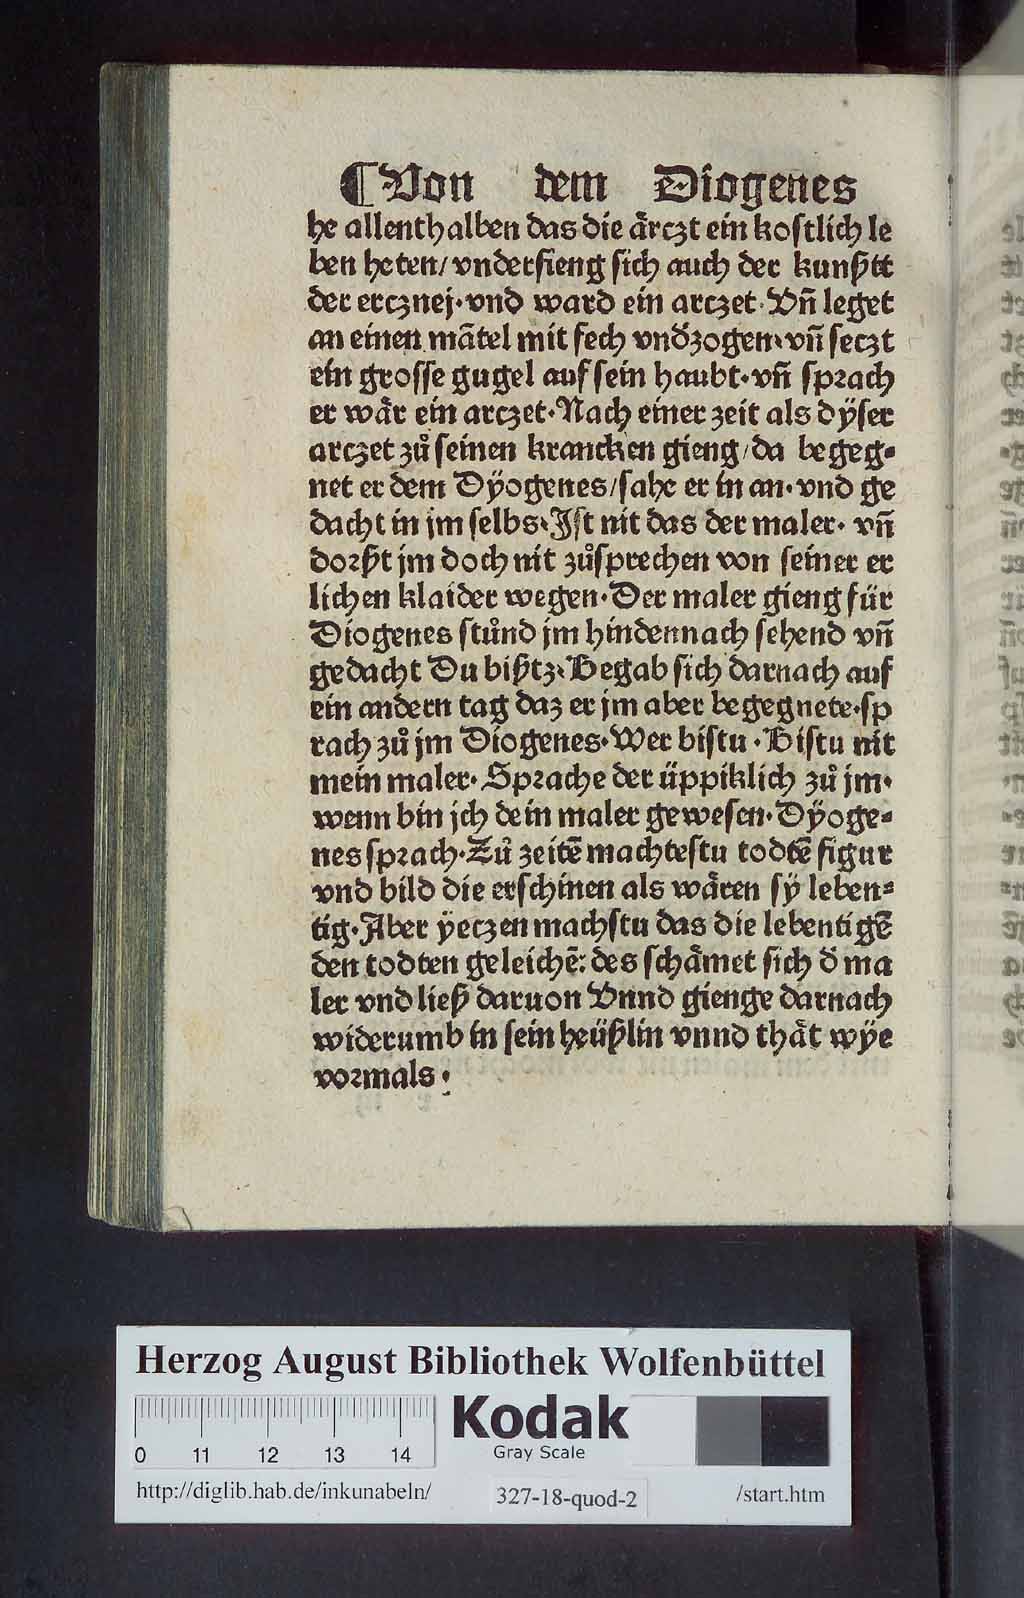 ¶Von dem Diogenes
he allenthalben das die aͤrczt ein koſtlich le
ben heten/ vnderfieng ſich auch der kunſtt
der ercznej· vnd ward ein arczet· Vn̄ leget
an einen mātel mit fech vndzogen· vn̄ ſeczt
ein groſſe gugel auf ſein haubt· vn̄ ſprach
er waͤr ein arczet· Nach einer zeit als dÿſer
arczet zuͦ ſeinen krancken gieng/ da begeg⸗
net er dem Dÿogenes/ ſahe er in an· vnd ge
dacht in jm ſelbs· Iſt nit das der maler· vn̄
dorßt jm doch nit zuͦſprechen von ſeiner er
lichen klaider wegen· Der maler gieng für
Diogenes ſtuͦnd jm hindennach ſehend vn̄
gedacht Du bißtz· Begab ſich darnach auf
ein andern tag daz er jm aber begegnete· ſp
rach zuͦ jm Diogenes· Wer biſtu · Biſtu nit
mein maler· Sprache der üppiklich zuͦ jm·
wenn bin jch dein maler geweſen· Dÿoge⸗
nes ſprach· Zuͦ zeitē machteſtu todtē figur
vnd bild die erſchinen als waͤren ſÿ leben⸗
tig· Aber ÿeczen machſtu das die lebentigē
den todten geleichē: des ſchaͤmet ſich d̕ ma
ler vnd ließ daruon Vnnd gienge darnach
widerumb in ſein heüßlin vnnd thaͤt wÿe
vormals ·
Herzog August Bibliothek Wolfenbüttel
Kodak
Gray Scale
0 11 12 13 14
http://diglib.hab.de/inkunabeln/ 327-18-quod-2 /start.htm